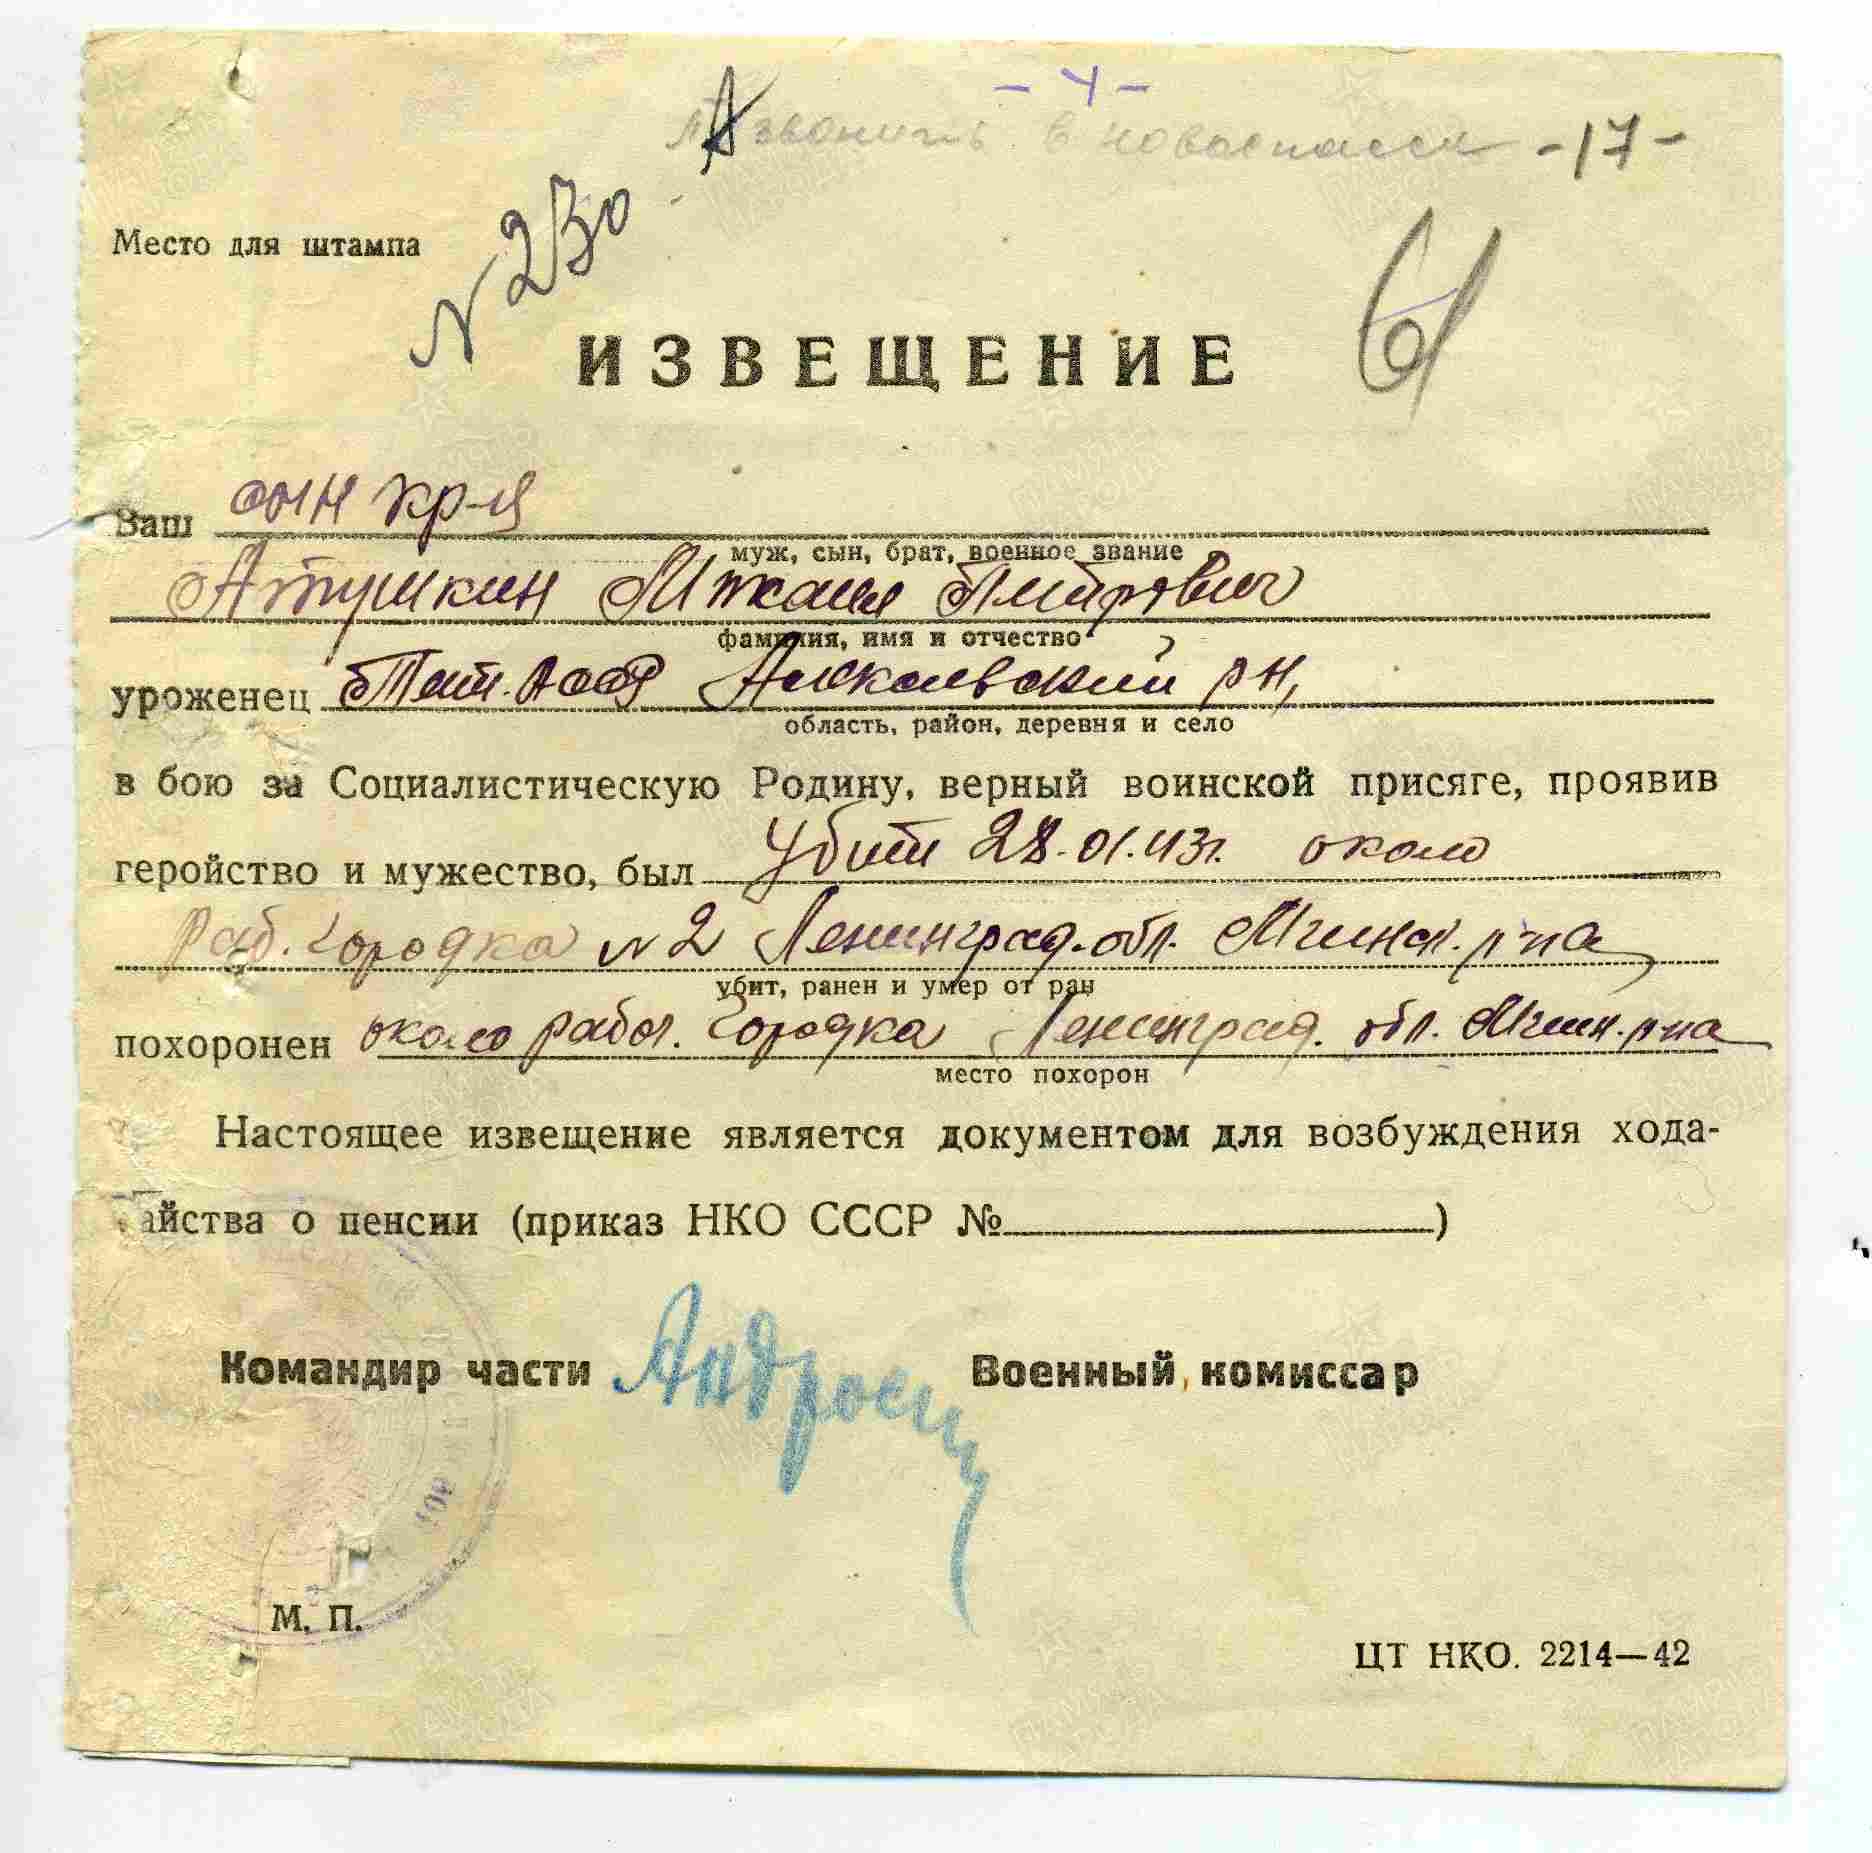 - 4 -
позвонить в новоспасск -17-
Место для штампа
N 230
ИЗВЕЩЕНИЕ
Ваш сын кр-ц
муж, сын, брат, военное звание
Атушкин Михаил Дмитрович
фамилия, имя и отчество
уроженец Тат. АССР р-н,
область, район, деревня и село
в бою за Социалистическую Родину, верный воинской присяге, проявив
геройство и мужество, был убит 28.01.43г. около
Раб. городка N 2 Ленинград. обл. Мгинск. р-на
убит, ранен и умер от ран
похоронен около рабоч. городка Ленинград. обл. Мгин. р-на
место похорон
Настоящее извещение является документом для возбуждения хода-
тайства о пенсии (приказ НКО СССР № )
Командир части Военный комиссар
М. П.
ЦТ НКО. 2214—42